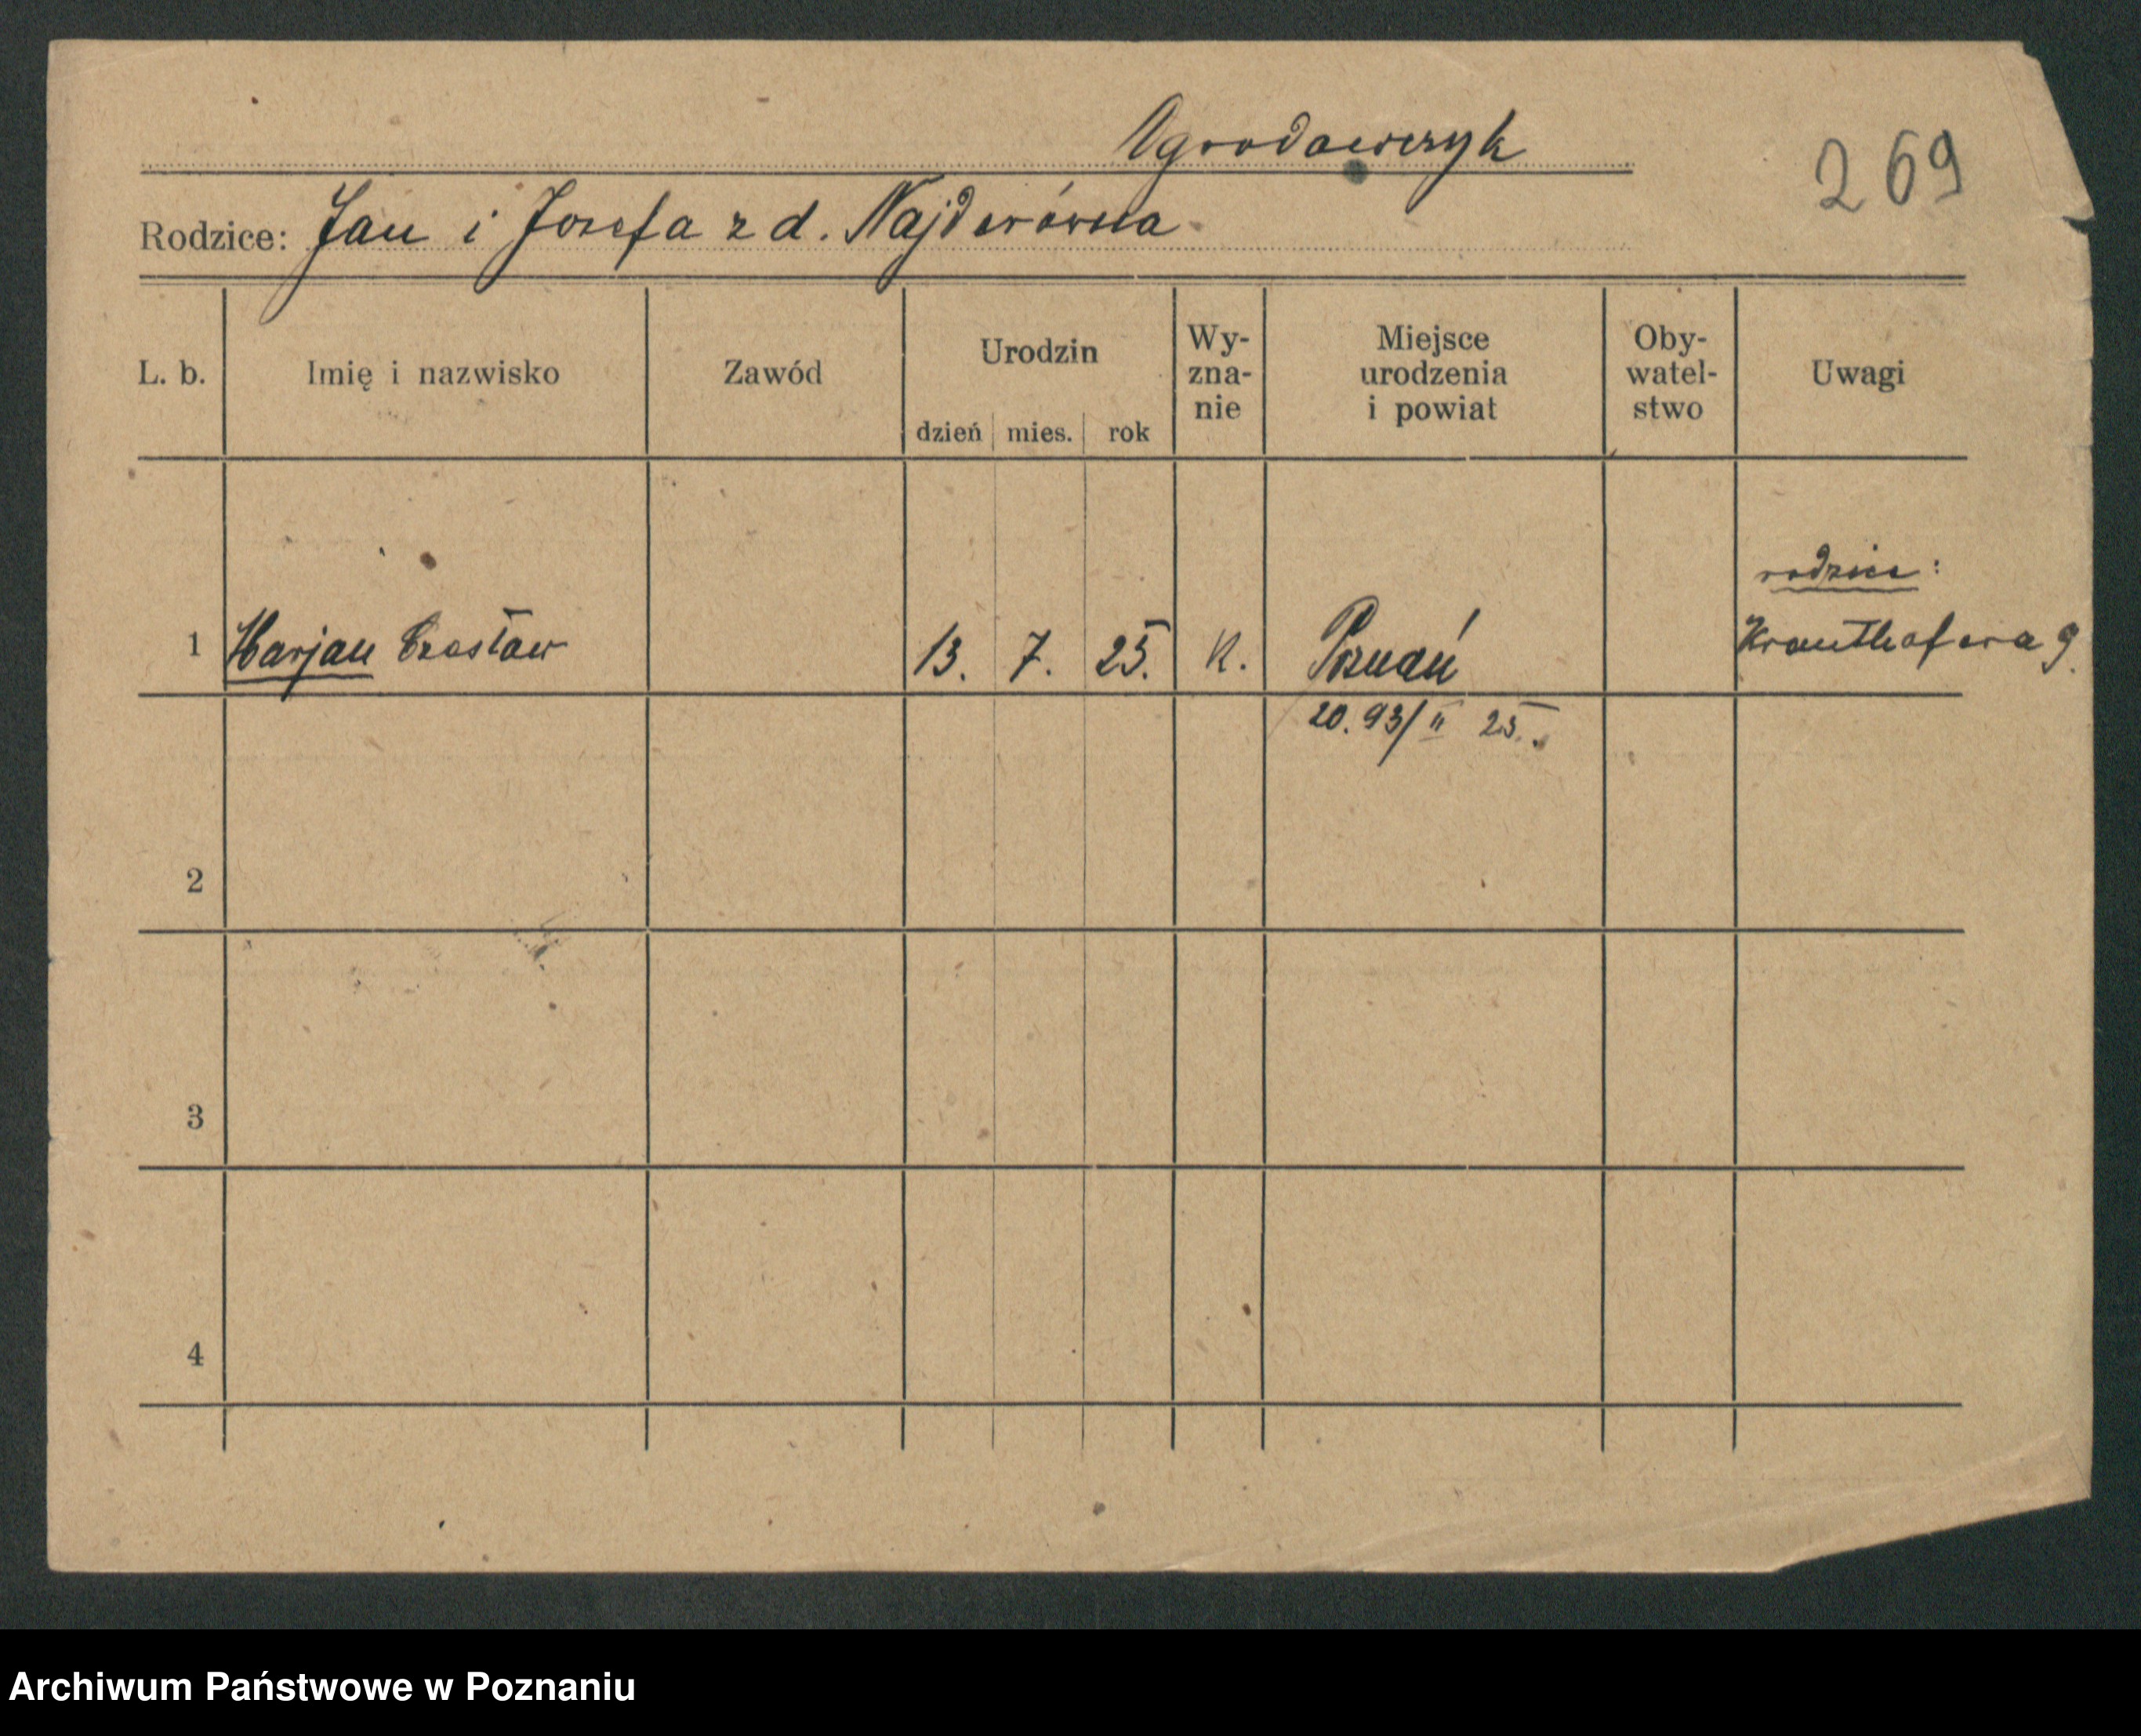 Ogrodowczyk
269
Rodzice: Jan i Józefa z d. Najderówna
L. b. Imię i nazwisko Zawód Urodzin dzień mies. rok Wy-zna-nie Miejsce urodzenia i powiat Oby-watel-stwo Uwagi
rodzice:
1 Marjan Czesław 13. 7. 25. K. Poznań Krauthofera 9.
20. 93/II 25.
2
3
4
Archiwum Państwowe w Poznaniu